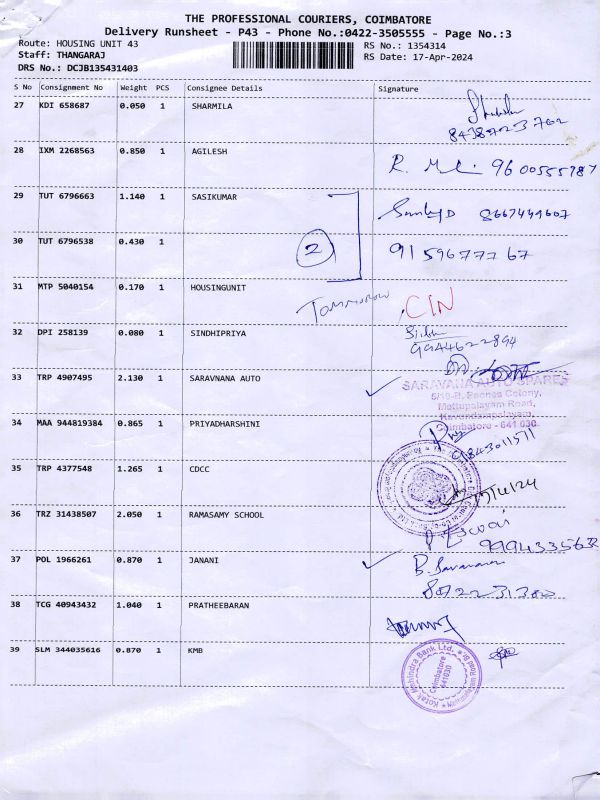 THE PROFESSIONAL COURIERS, COIMBATORE
Delivery Runsheet - P43 - Phone No.:0422-3505555 - Page No.:3
Route: HOUSING UNIT 43 RS No.: 1354314
Staff: THANGARAJ RS Date: 17-Apr-2024
DRS No.: DCJB135431403
S No Consignment No Weight PCS Consignee Details Signature
27 KDI 658687 0.050 1 SHARMILA
28 IXM 2268563 0.850 1 AGILESH
R. 9600555787
29 TUT 6796663 1.140 1 SASIKUMAR
8667449607
30 TUT 6796538 0.430 1
2 9159677767
31 MTP 5040154 0.170 1 HOUSINGUNIT
Tommorow CIN
32 DPI 258139 0.080 1 SINDHIPRIYA
9944622894
33 TRP 4907495 2.130 1 SARAVNANA AUTO
SARAVANA AUTO SPARES
Mettupalayam Road,
Kavundampalayam,
Coimbatore - 641 030.
34 MAA 944819384 0.865 1 PRIYADHARSHINI
9843011571
35 TRP 4377548 1.265 1 CDCC
36 TRZ 31438507 2.050 1 RAMASAMY SCHOOL
37 POL 1966261 0.870 1 JANANI
38 TCG 40943432 1.040 1 PRATHEEBARAN
39 SLM 344035616 0.870 1 KMB
Kotak Mahindra Bank Ltd.
Coimbatore
641030